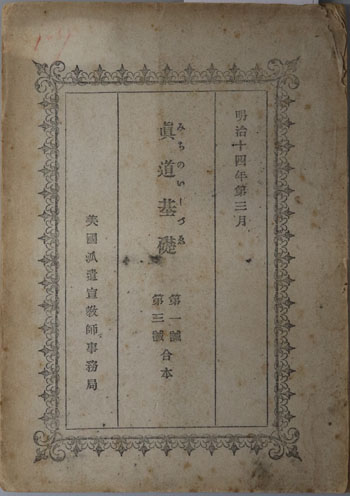 明治十四年第三月
みちのいしづゑ
眞道基礎
第一號
第三號
合本
美國派遣宣教師事務局